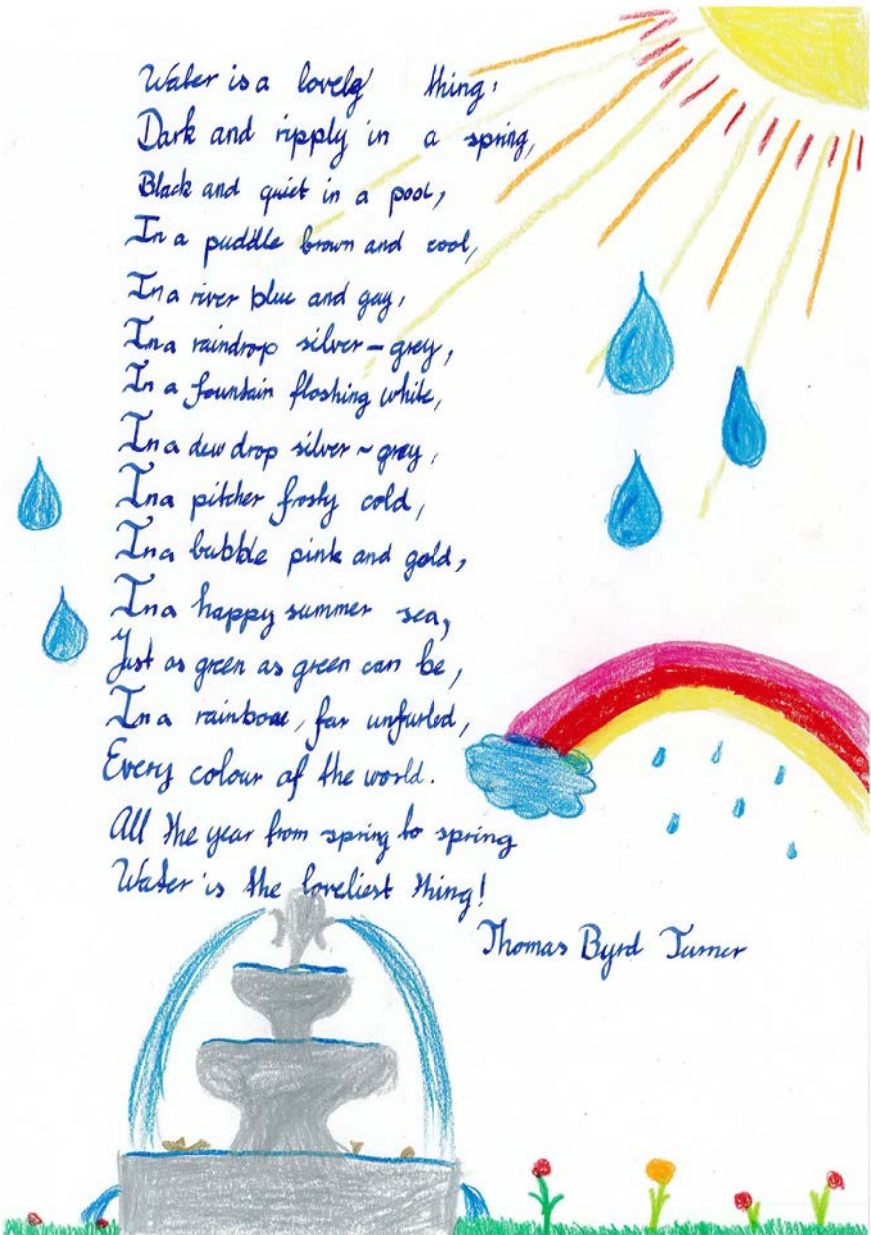 Water is a lovely thing;
Dark and ripply in a spring,
Black and quiet in a pool,
In a puddle brown and cool,
In a river blue and gay,
In a raindrop silver-grey,
In a fountain flashing white,
In a dew drop silver-grey,
In a pitcher frosty cold,
In a bubble pink and gold,
In a happy summer sea,
Just as green as green can be,
In a rainbow, far unfurled,
Every colour of the world.
All the year from spring to spring
Water is the loveliest thing!
Thomas Byrd Turner